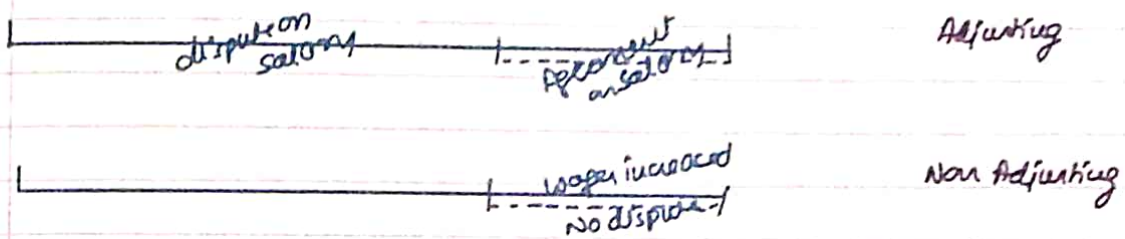 dispute on
salary
Agreement
on salary
Adjusting
wages increased
No dispute
Non Adjusting